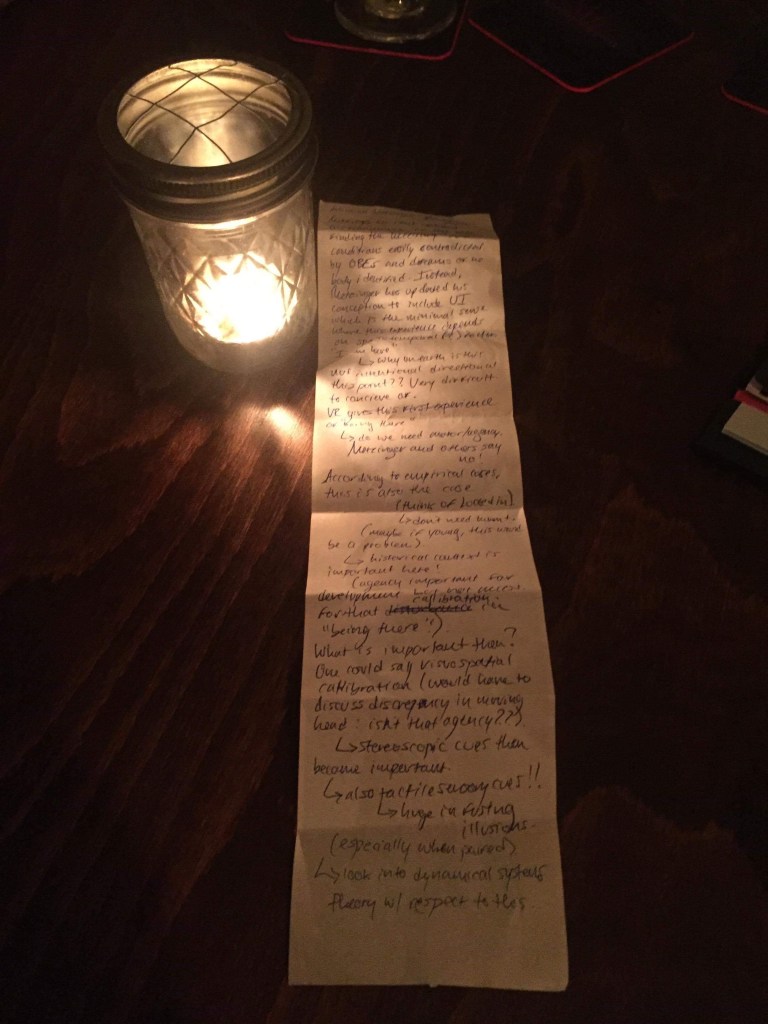 Finding the necessary
conditions easily contradicted
by OBEs and dreams or no
body identified. Instead,
Metzinger has updated his
conception to include UI
which is the minimal sense
where this experience depends
on
I am here"
↳ Why on earth is this
not intentional directional
this point?? Very difficult
to concieve of.
VR gives this first experience
of being there"
↳ do we need motor/agency.
Metzinger and others say
no!
According to empirical cases,
this is also the case
(think of locked in)
↳ don't need
(maybe if young, this would
be a problem)
↳ historical context is
important here!
(agency important for
development but not
calibration
for that in
"being there").
What is important then?
One could say visuospatial
callibration (would have to
discuss discrepancy in moving
head: isn't that agency??)
↳ stereoscopic cues then
become important.
↳ also tactile sensory cues!!
↳ huge in fusing
illusions.
(especially when paired)
↳ look into dynamical systems
theory w/ respect to this.